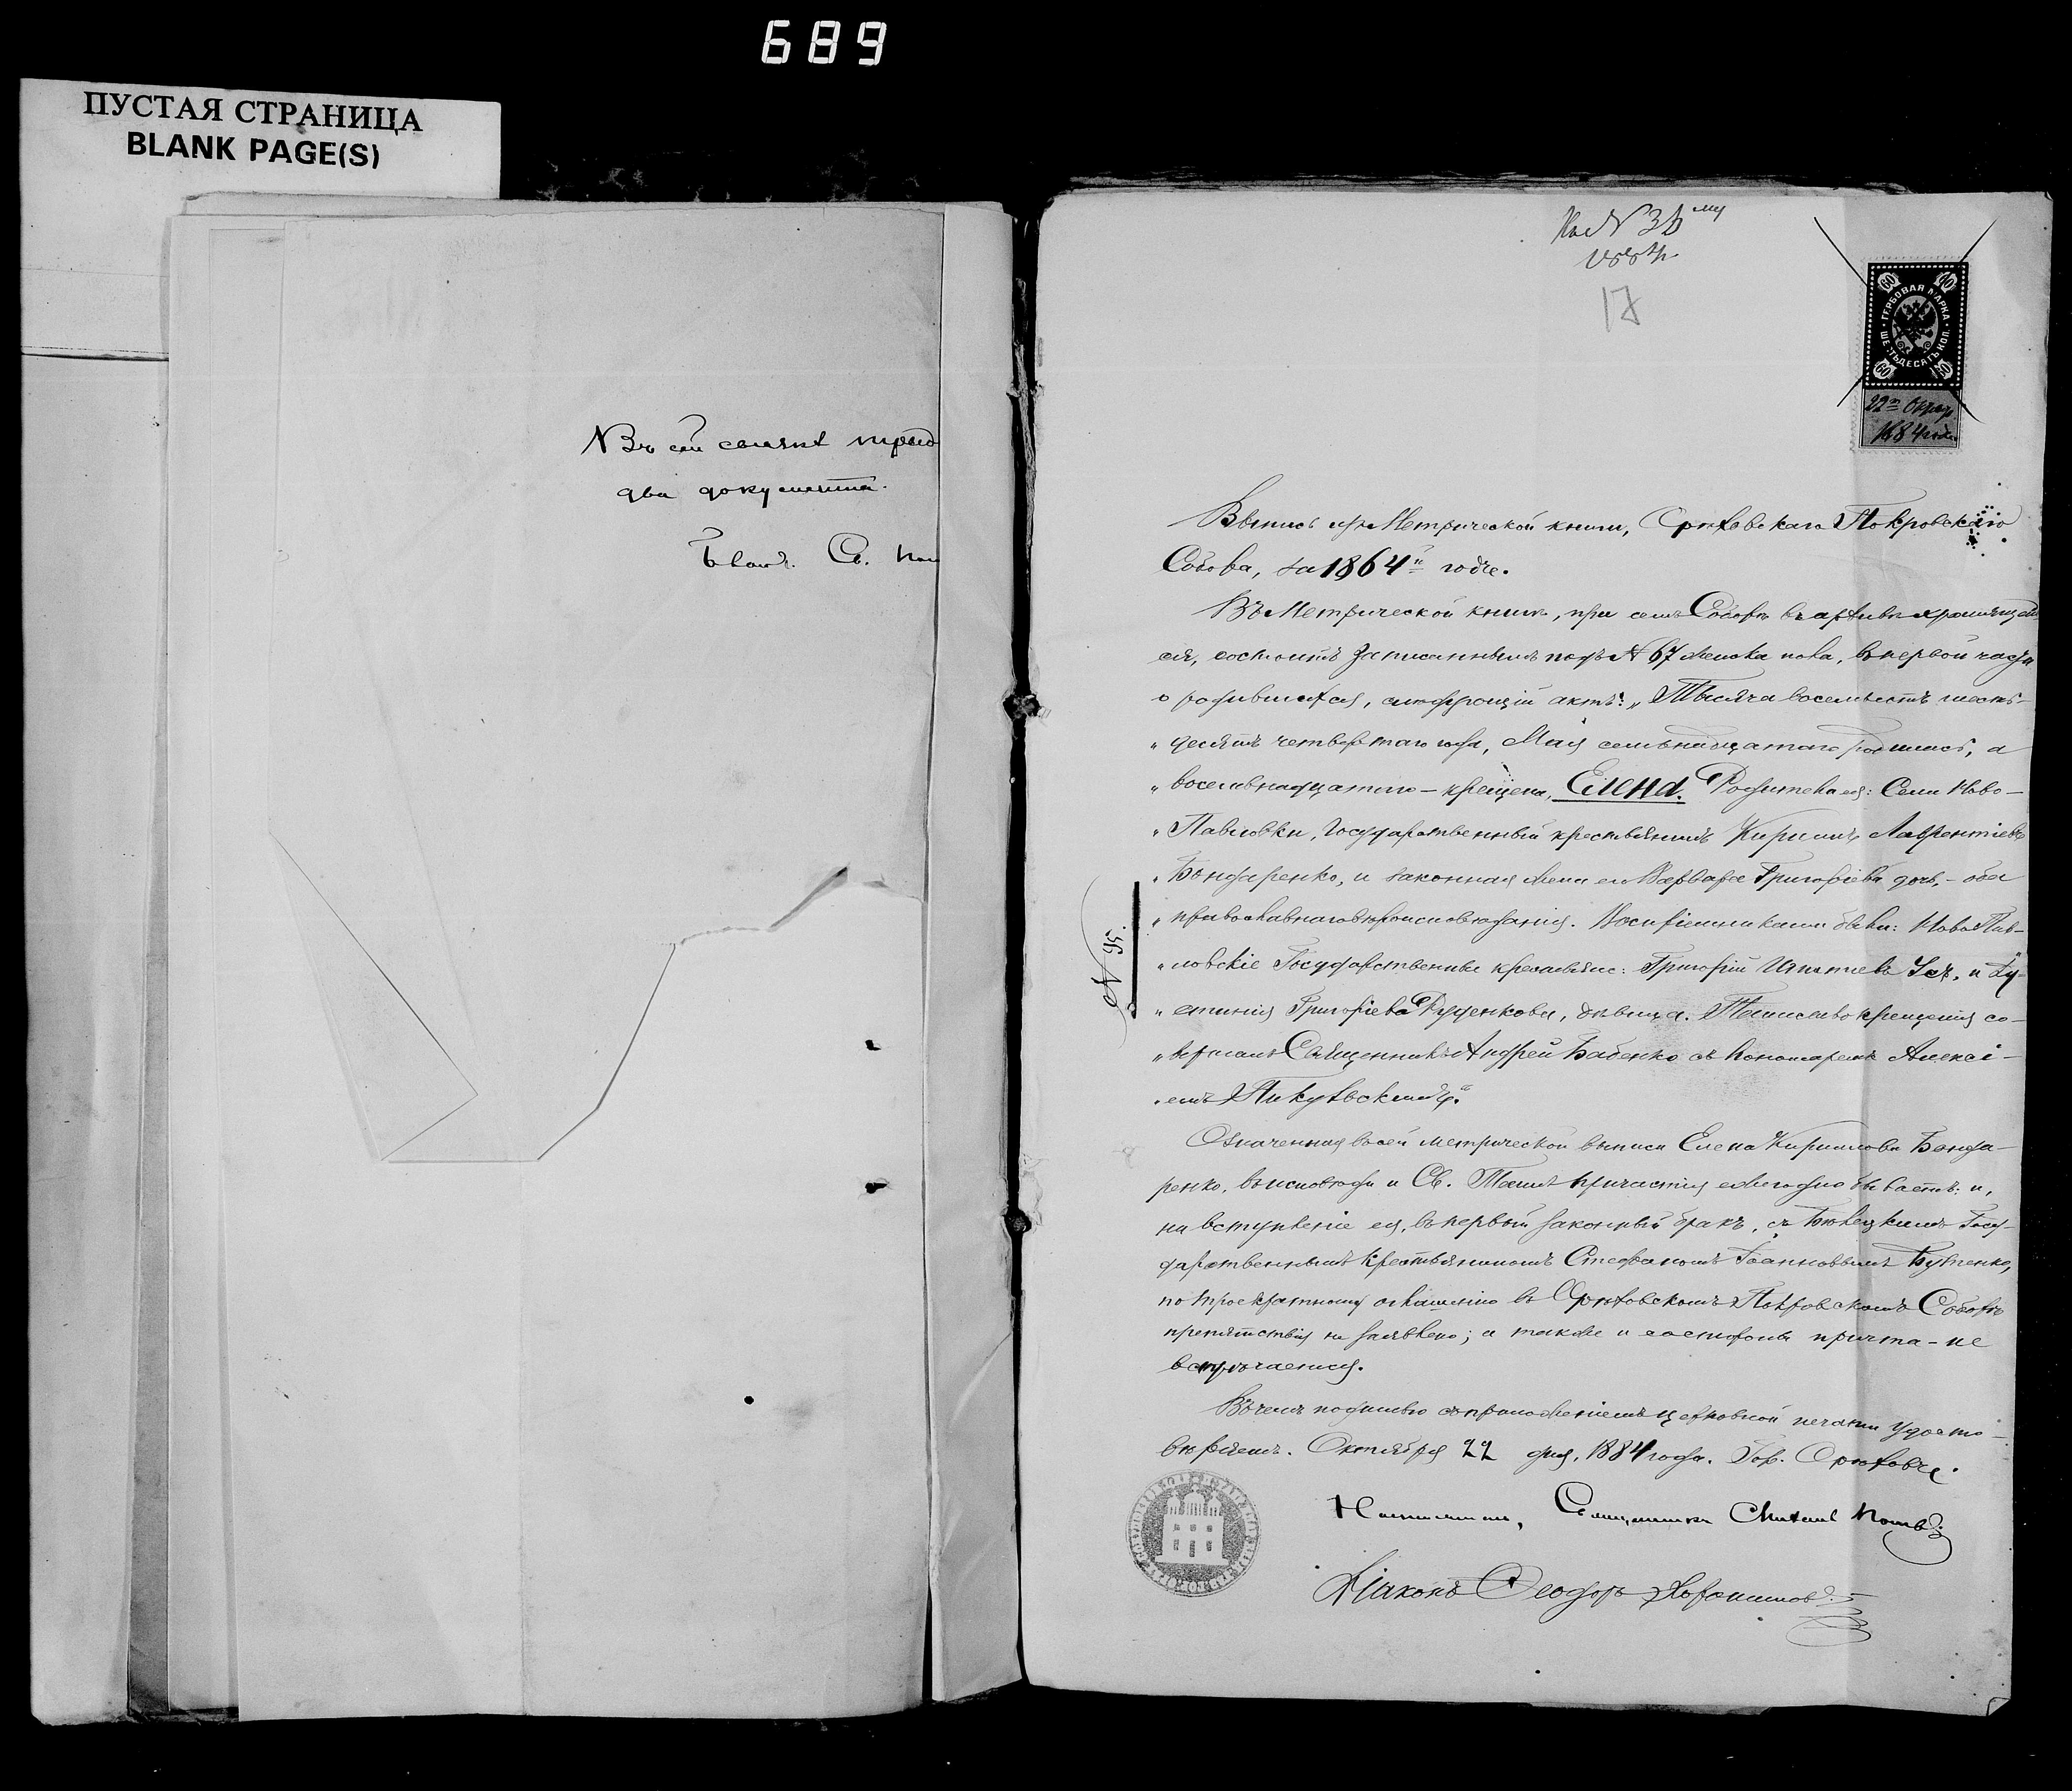 689
ПУСТАЯ СТРАНИЦА
BLANK PAGE(S)
Въ сей связкѣ
два документа.
Св.
17
ГЕРБОВАЯ МАРКА
ШЕСТЬДЕСЯТЪ КОП.
60 60
60 60
22го Октяб.
1884 года
Выпись изъ Метрической книги, Орѣховскаго Покровскаго
Собора, за 1864й годъ.
Въ Метрической книгѣ, при семъ Соборѣ въ архивѣ хранящей
ся, состоитъ записаннымъ подъ № 67 женска пола, въ первой части
о родившихся, слѣдующій актъ: „Тысяча восемьсотъ шесть-
„десятъ четвертаго года, Мая семьнадцатаго родилась, а
„восемьнадцатаго – крещена, Елена. Родители ея: Села Ново-
„Павловки, Государственный крестьянинъ Кириллъ Лаврентіевъ
„Бондаренко, и законная жена его Варвара Григоріева дочь, – оба
„православнаго вѣроисповѣданія. Воспріемниками были: НовоПав-
„ловскіе Государственные крестьяне: Григорій Игнатіевъ Усъ, и Іу-
„стинія Григоріева Руденкова, дѣвица. Таинство крещенія со-
„вершалъ Священникъ Андрей Бабенко съ пономаремъ Алексѣ-
„емъ
№ 95.
Означенная въ сей метрической выписи Елена Кириллова Бонда-
ренко, въ исповѣди и Св. Таинъ причастія ежегодно бываетъ: и,
на вступленіе ея, въ первый законный бракъ, съ Государственнымъ
крестьяниномъ Стефаномъ Іоанновымъ Бутенко,
по троекратному оглашенію въ Орѣховскомъ Покровскомъ Соборѣ
препятствія не заявлено; а также и со стороны причта – не
встрѣчается.
Въ чемъ подписью съ приложеніемъ церковной печати удосто-
вѣряемъ. Октября 22 дня, 1884 года. Гор. Орѣховъ.
Настоятель, Священникъ Михаилъ Поповъ
Діаконъ Ѳеодоръ